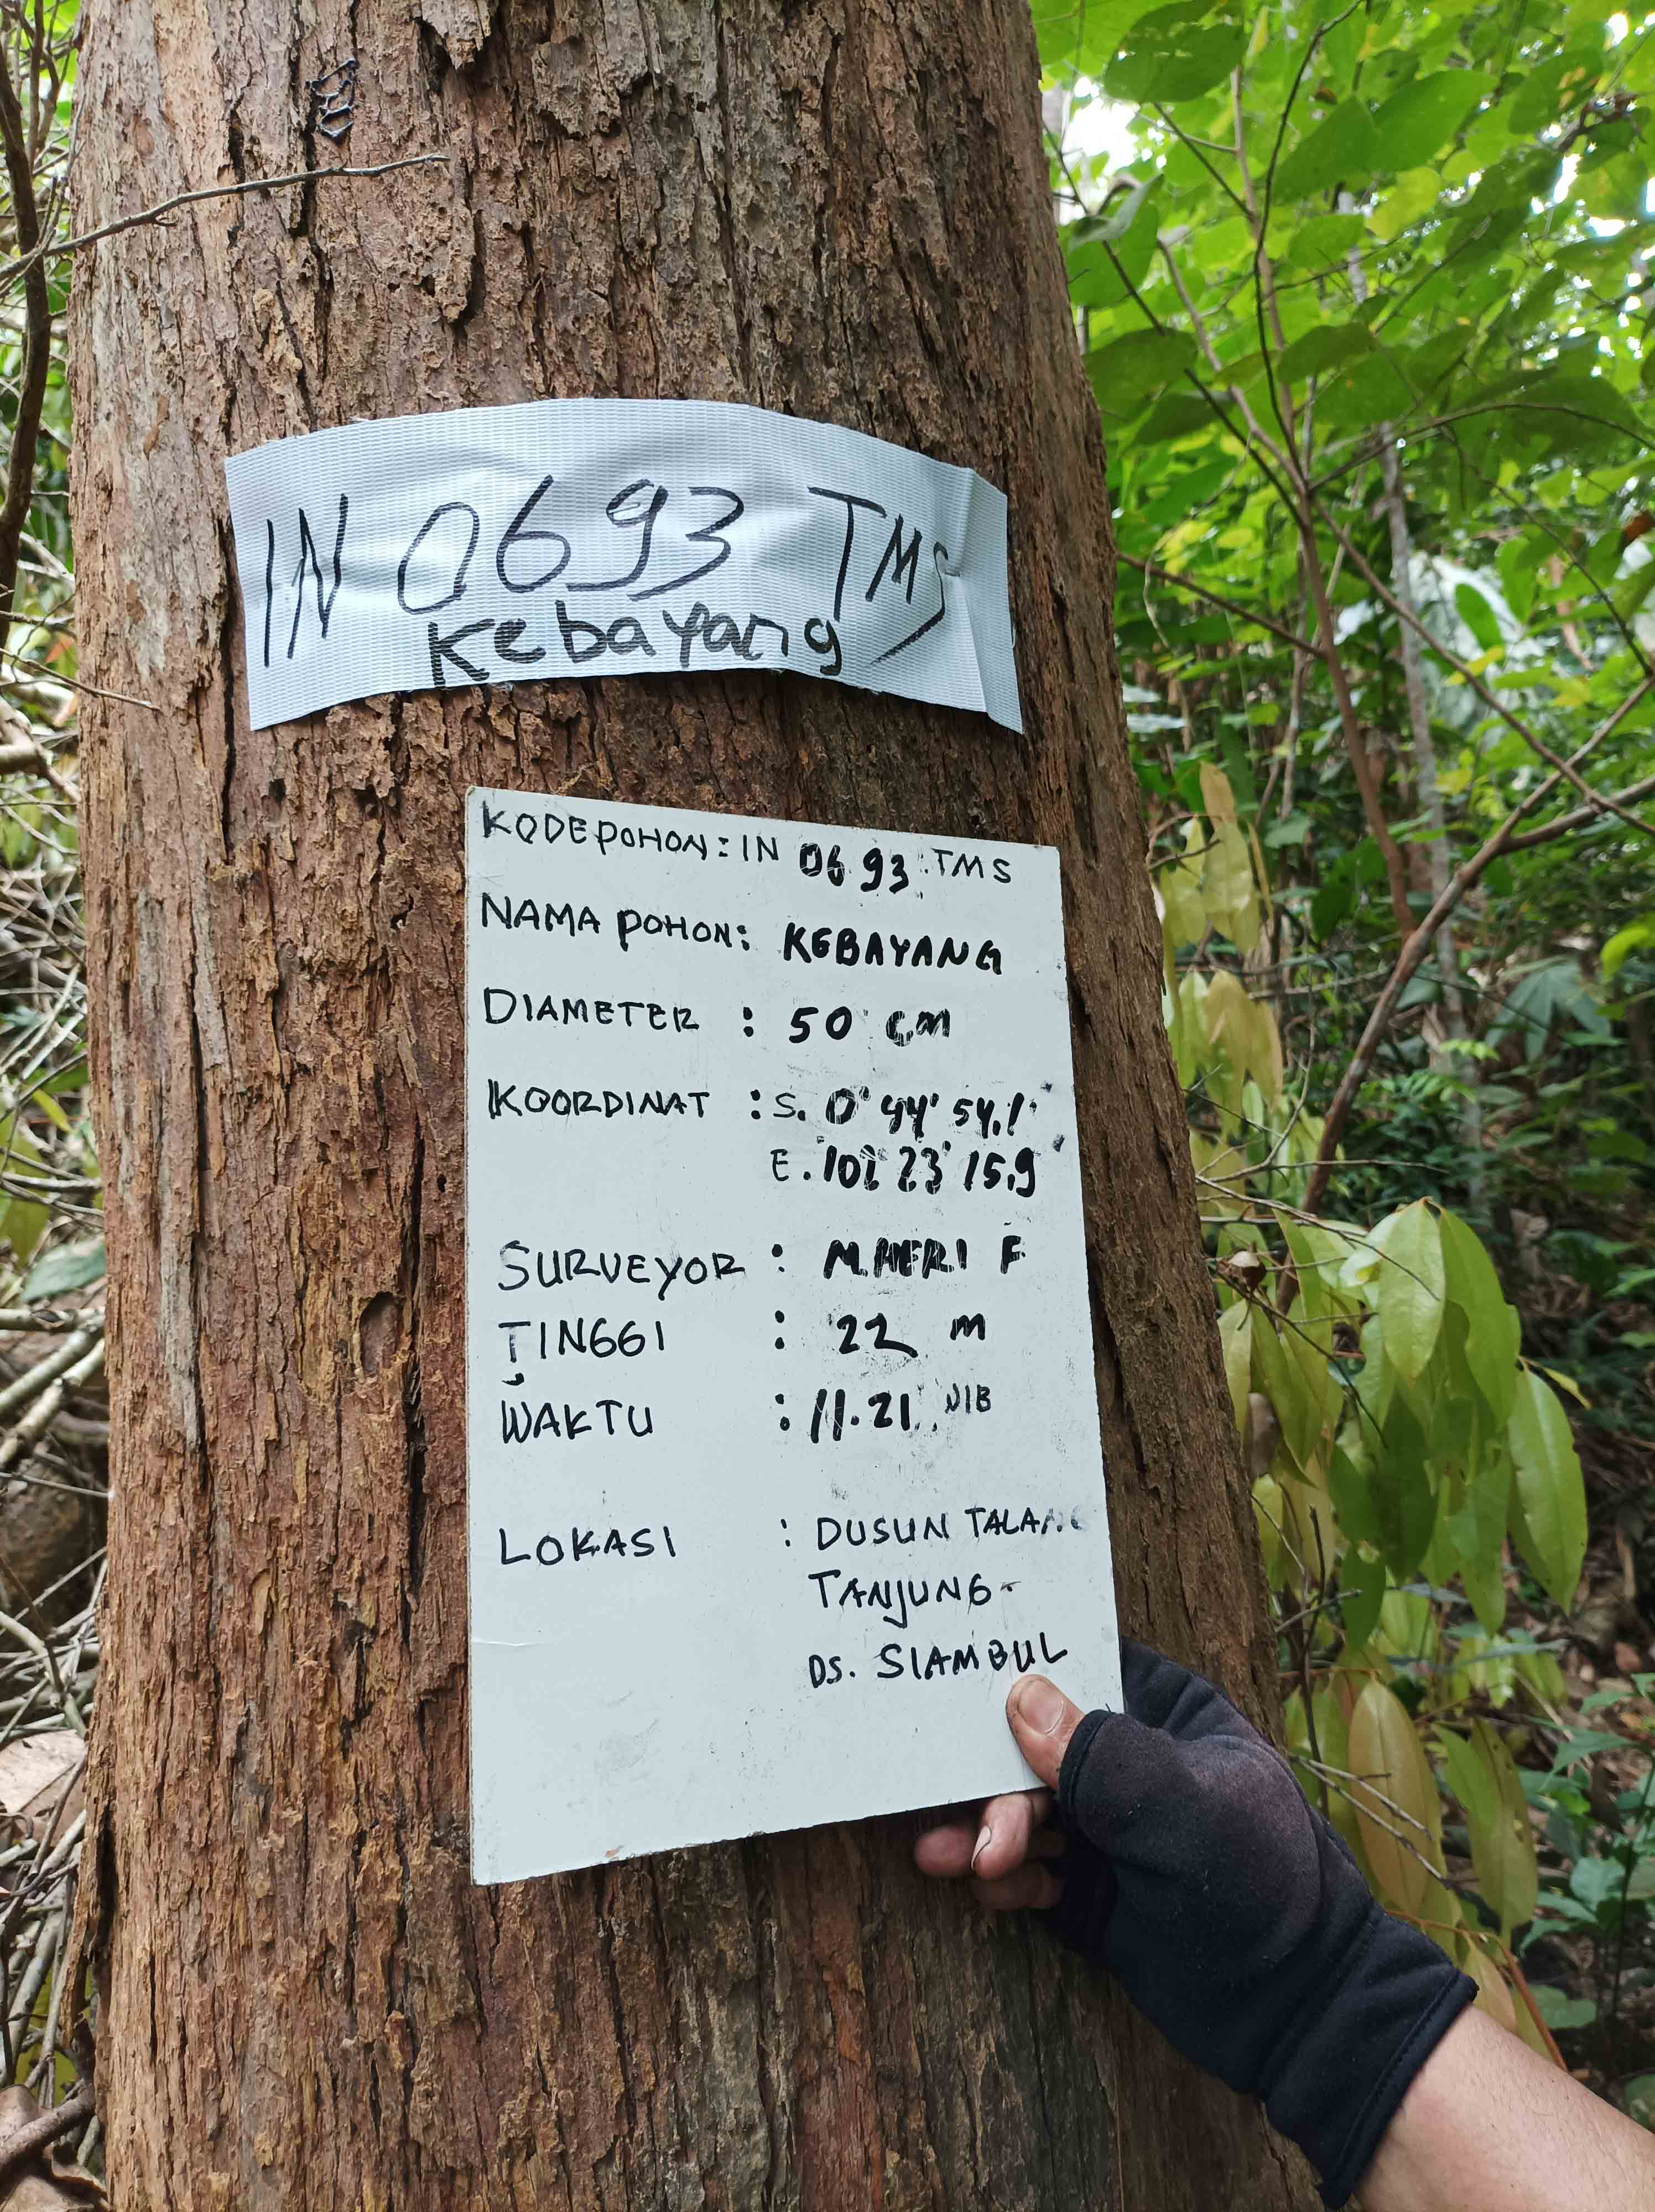 IN 0693 TMS
Kebayang
KODE POHON : IN 0693 TMS
NAMA POHON : KEBAYANG
DIAMETER : 50 CM
KOORDINAT : S. 0° 44' 54,1"
E. 102° 23' 15,9"
SURVEYOR : M. HERI F
TINGGI : 22 m
WAKTU : 11.21 WIB
LOKASI : DUSUN TALANG
TANJUNG -
DS. SIAMBUL